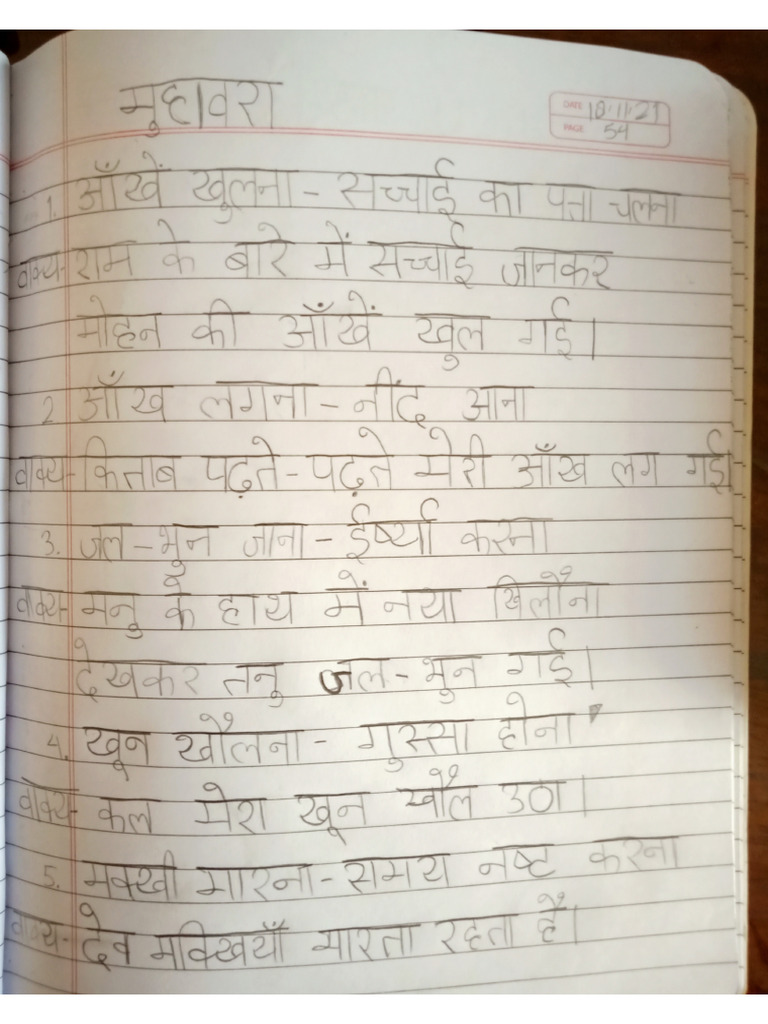 मुहावरा
DATE 18.11.21
PAGE 54
1. आँखें खुलना - सच्चाई का पता चलना
वाक्य- राम के बारे में सच्चाई जानकर
मोहन की आँखें खुल गई।
2 आँख लगना - नींद आना
वाक्य- किताब पढ़ते-पढ़ते मेरी आँख लग गई।
3. जल-भुन जाना - ईर्ष्या करना
वाक्य- मनु के हाथ में नया खिलौना
देखकर तनु जल-भुन गई।
4. खून खौलना - गुस्सा होना
वाक्य- कल मेरा खून खौल उठा।
5. मक्खी मारना - समय नष्ट करना
वाक्य- देव मक्खियाँ मारता रहता है।